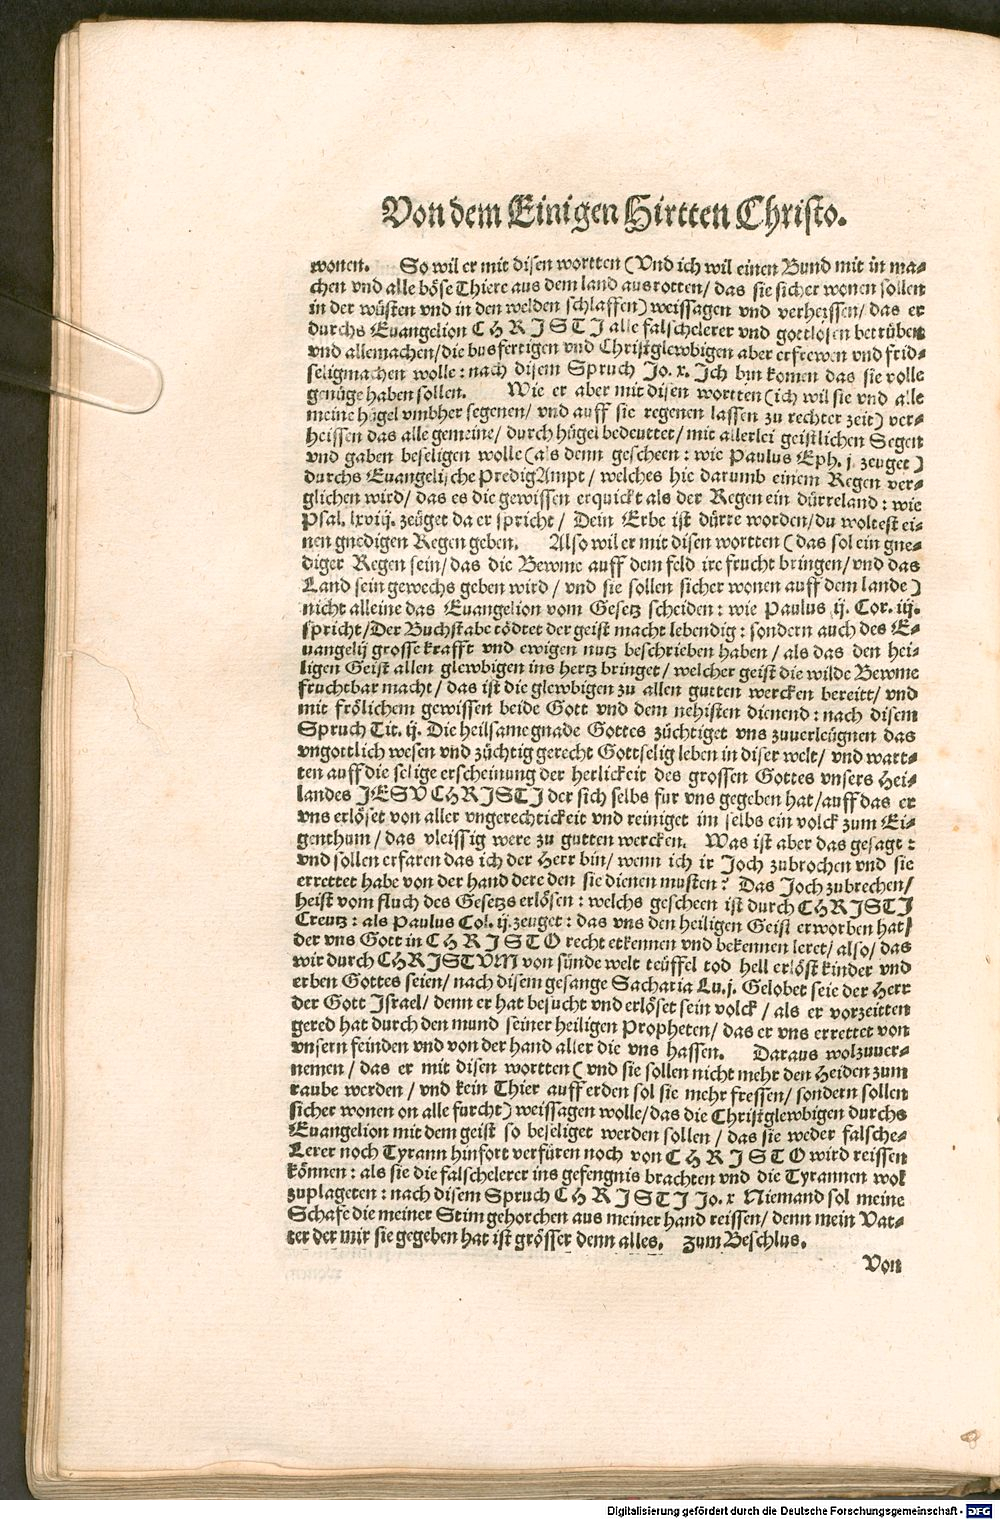 Von dem Einigen Hirtten Christo.
wonen. So wil er mit disen wortten (Vnd ich wil einen Bund mit in ma⸗
chen vnd alle böse Thiere aus dem land ausrotten/ das sie sicher wonen sollen
in der wüsten vnd in den welden schlaffen) weissagen vnd verheissen/ das er
durchs Euangelion CHRISTI alle falschelerer vnd gottlosen betrüben
vnd allemachen/die busfertigen vnd Christglewbigen aber erfrewen vnd frid⸗
seligmachen wolle: nach disem Spruch Jo. x. Ich bin komen das sie volle
genüge haben sollen. Wie er aber mit disen wortten (ich wil sie vnd alle
meine hügel vmbher segenen/ vnd auff sie regenen lassen zu rechter zeit) ver⸗
heissen das alle gemeine/ durch hügel bedeuttet/ mit allerlei geistlichen Segen
vnd gaben beseligen wolle (als denn gescheen: wie Paulus Eph. j. zeuget)
durchs Euangelische PredigAmpt/ welches hie darumb einem Regen ver⸗
glichen wird/ das es die gewissen erquickt als der Regen ein dürreland: wie
Psal. lxviij. zeüget da er spricht/ Dein Erbe ist dürre worden/du woltest ei⸗
nen gnedigen Regen geben. Also wil er mit disen wortten (das sol ein gne⸗
diger Regen sein/ das die Bewme auff dem feld ire frucht bringen/ vnd das
Land sein gewechs geben wird/ vnd sie sollen sicher wonen auff dem lande)
nicht alleine das Euangelion vom Gesetz scheiden: wie Paulus ij. Cor. iij.
spricht/Der Buchstabe tödtet der geist macht lebendig: sondern auch des E⸗
uangelij grosse krafft vnd ewigen nutz beschrieben haben/ als das den hei⸗
ligen Geist allen glewbigen ins hertz bringet/ welcher geist die wilde Bewme
fruchtbar macht/ das ist die glewbigen zu allen gutten wercken bereitt/ vnd
mit frölichem gewissen beide Gott vnd dem nehisten dienend: nach disem
Spruch Tit. ij. Die heilsame gnade Gottes züchtiget vns zuuerleügnen das
vngottlich wesen vnd züchtig gerecht Gottselig leben in diser welt/ vnd wart⸗
ten auff die selige erscheinung der herlickeit des grossen Gottes vnsers Hei⸗
landes JESV CHRISTI der sich selbs fur vns gegeben hat/auff das er
vns erlöset von aller vngerechtickeit vnd reiniget im selbs ein volck zum Ei⸗
genthum/ das vleissig were zu gutten wercken. Was ist aber das gesagt:
vnd sollen erfaren das ich der Herr bin/ wenn ich ir Joch zubrochen vnd sie
errettet habe von der hand dere den sie dienen musten? Das Joch zubrechen/
heist vom fluch des Gesetzs erlösen: welchs gescheen ist durch CHRISTI
Creutz: als Paulus Col. ij. zeuget: das vns den heiligen Geist erworben hat/
der vns Gott in CHRISTO recht etkennen vnd bekennen leret/ also/ das
wir durch CHRISTVM von sünde welt teüffel tod hell erlöst kinder vnd
erben Gottes seien/ nach disem gesange Sacharia Lu.j. Gelobet seie der Herr
der Gott Israel/ denn er hat besucht vnd erlöset sein volck/ als er vorzeitten
gered hat durch den mund seiner heiligen Propheten/ das er vns errettet von
vnsern feinden vnd von der hand aller die vns hassen. Daraus wolzuuer⸗
nemen/ das er mit disen wortten (vnd sie sollen nicht mehr den Heiden zum
raube werden/ vnd kein Thier auff erden sol sie mehr fressen/ sondern sollen
sicher wonen on alle furcht) weissagen wolle/das die Christglewbigen durchs
Euangelion mit dem geist so beseliget werden sollen/ das sie weder falsche⸗
Lerer noch Tyrann hinfort verfüren noch von CHRISTO wird reissen
können: als sie die falschelerer ins gefengnis brachten vnd die Tyrannen wol
zuplageten: nach disem Spruch CHRISTI Jo. x Niemand sol meine
Schafe die meiner Stim gehorchen aus meiner hand reissen/ denn mein Vat⸗
ter der mir sie gegeben hat ist grösser denn alles. zum Beschlus.
Von
Digitalisierung gefördert durch die Deutsche Forschungsgemeinschaft - DFG